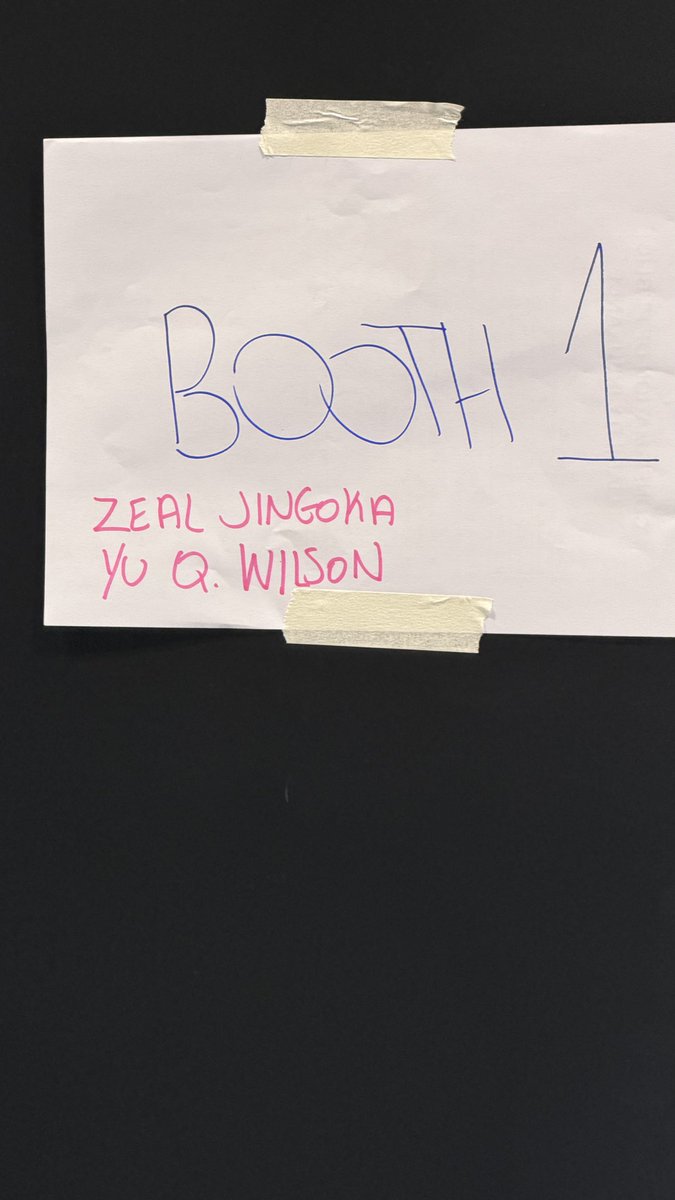 BOOTH 1
ZEAL JINGOKA
YU Q. WILSON